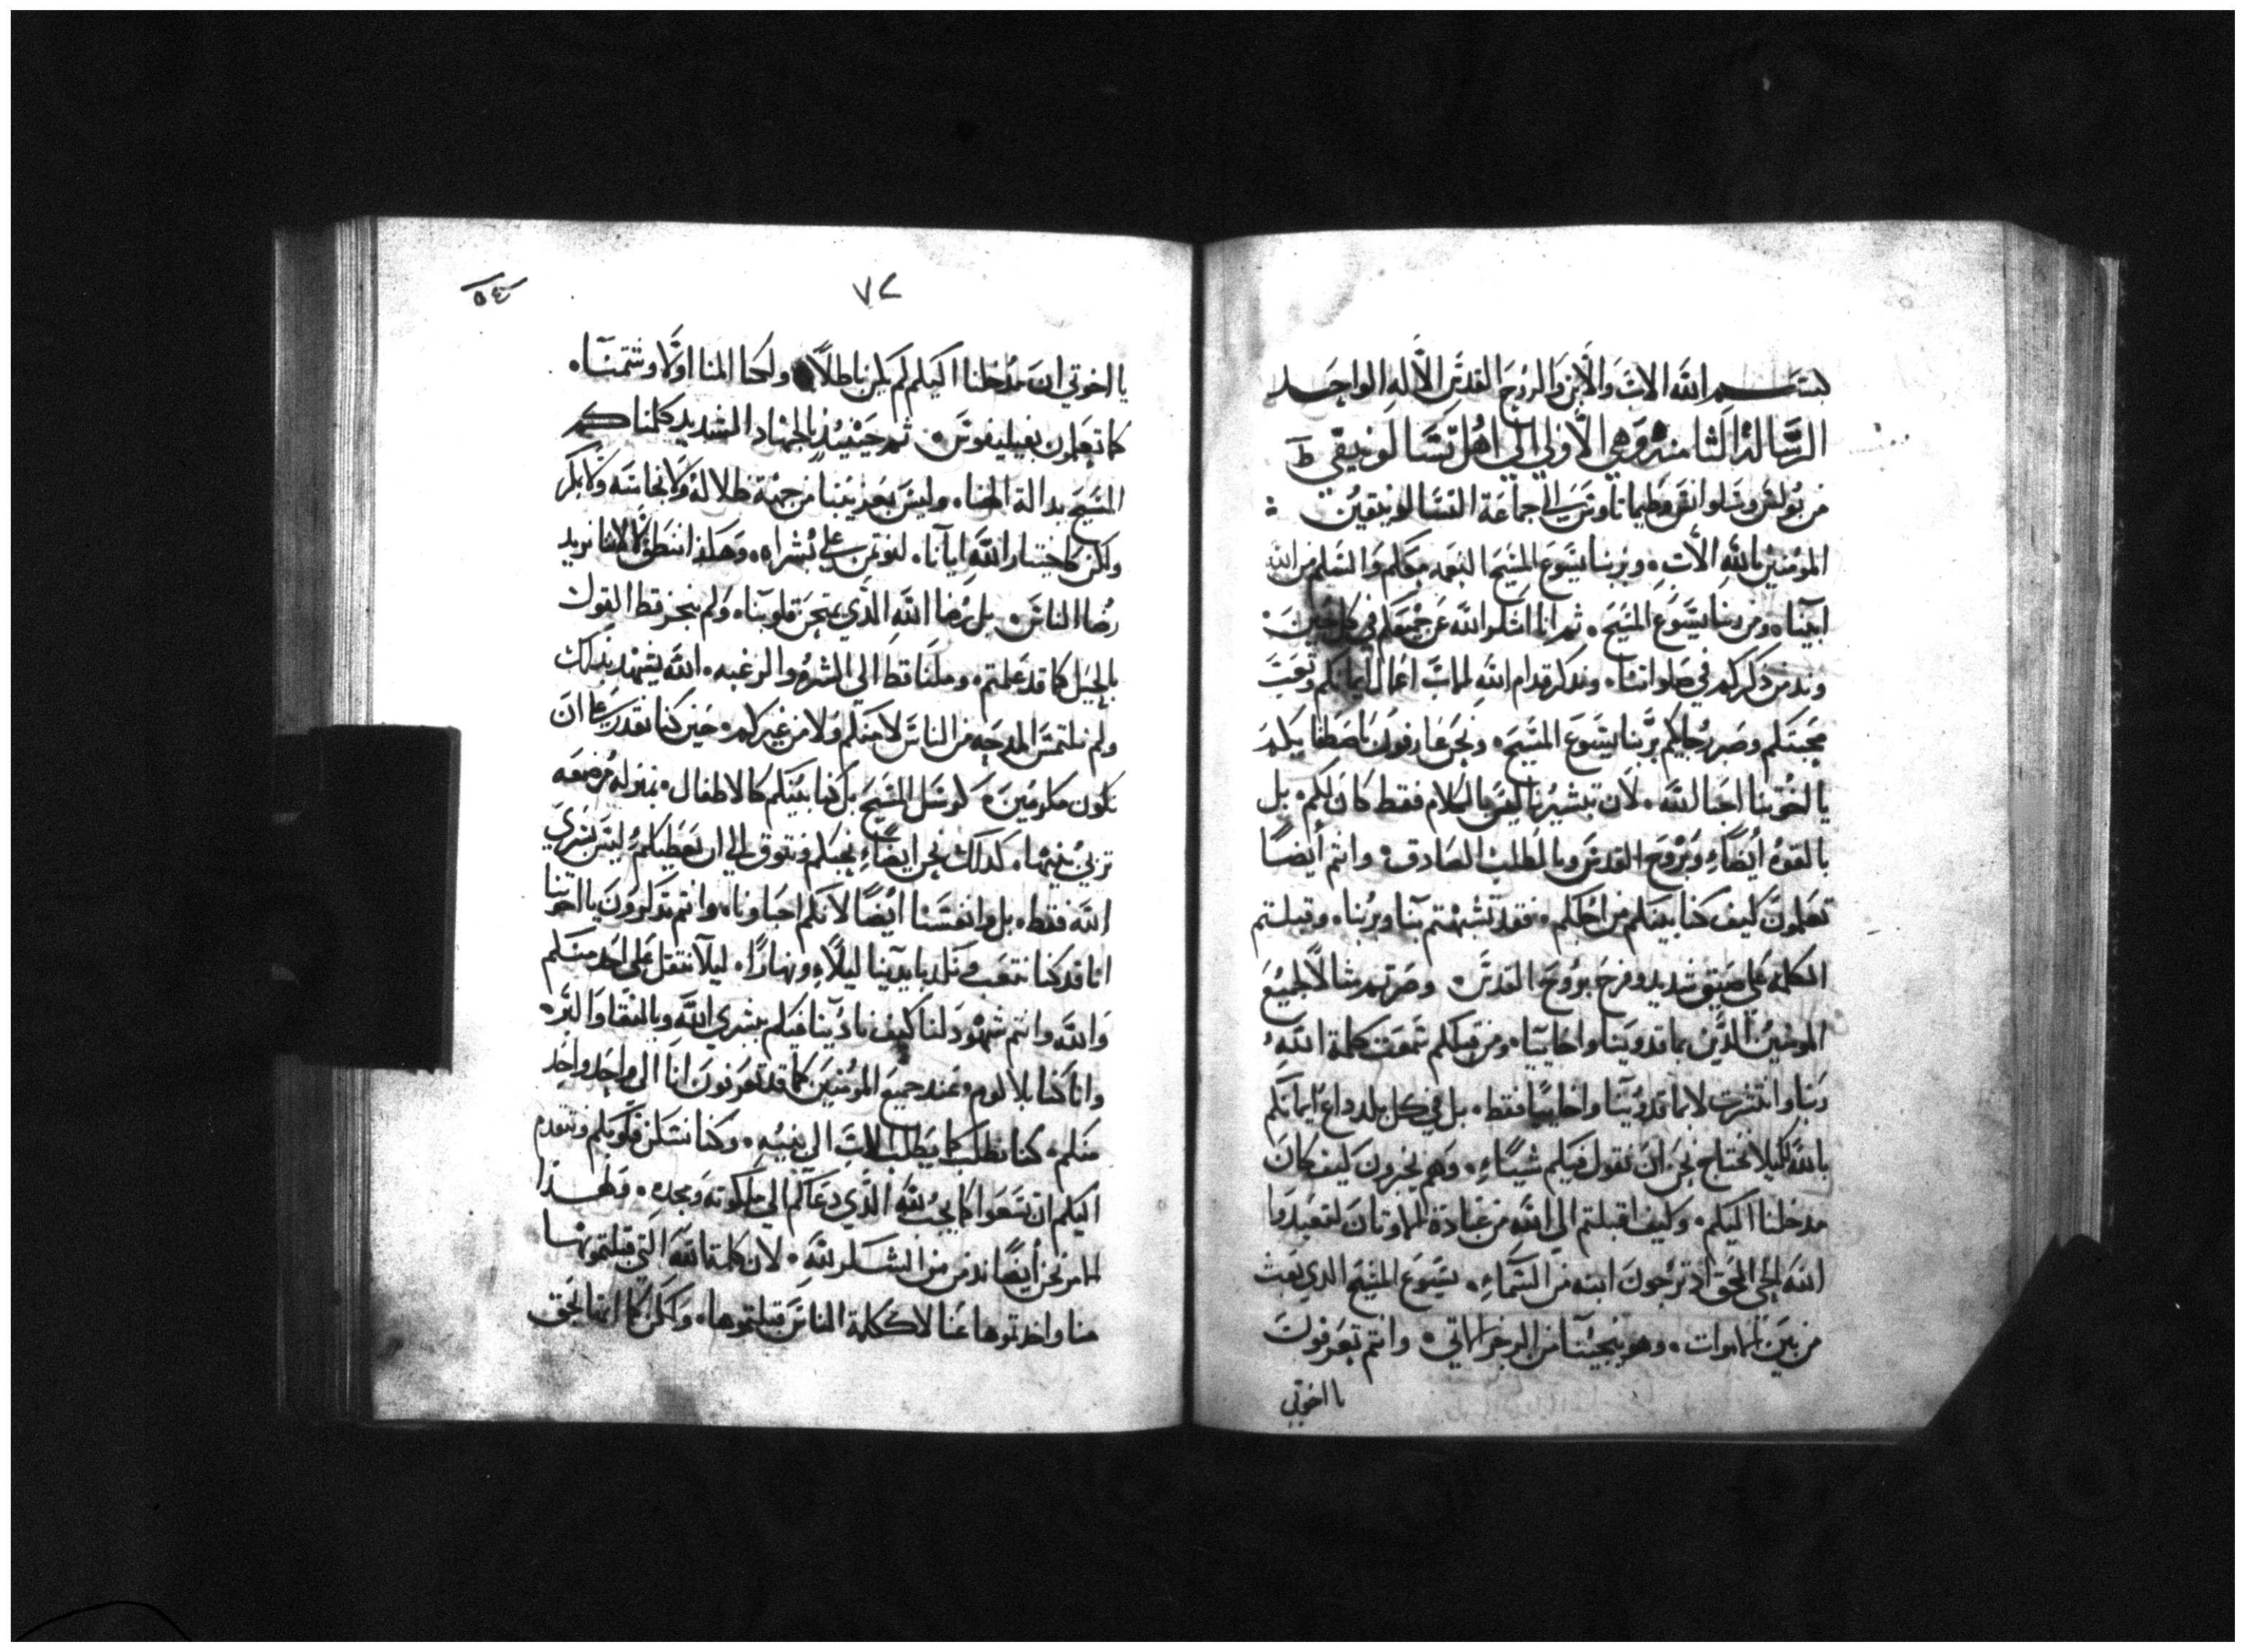 بسم الله الاب والابن والروح القدس الاله الواحد
الرسالة الثامنة وهي الاولي الي اهل تسالونيقي
من بولس وسلوانس وطيماتاوس الي جماعة التسالونيقيين
المومنين بالله الاب وبربنا يسوع المسيح النعمه معكم والسلم من الله
ابينا ومن ربنا يسوع المسيح ثم انا اشكر الله عن جميعكم في كل حين
وندمن ذكركم في صلواتنا ونذكر قدام الله اعمال ايمانكم وتعب
محبتكم وصبر رجاكم بربنا يسوع المسيح ونحن عارفون باصطفايكم
يا اخوتنا احبا الله لان تبشيرنا ليس بالكلام فقط كان لكم بل
بالقوه أيضاً وبروح القدس وبالطلب الصادق وانتم أيضاً
تعلمون كيف كنا بينكم من اجلكم فقد تشبهتم بنا وبربنا وقبلتم
الكلمه علي ضيق شديد وفرح بروح القدس وصرتم مثالاً لجميع
المومنين الذين بماقدونيا واخاييا ومن قبلكم سمعت كلمة الله
ربنا وانتشرت لا بماقدونيا واخاييا فقط بل في كل بلد ذاع ايمانكم
بالله لكيلا نحتاج نحن ان نقول فيكم شياً وهم يخبرون كيف كان
مدخلنا اليكم وكيف اقبلتم الي الله من عبادة الاوتان لتعبدوا
الله الحي الحق اذ ترجون ابنه من السماء يسوع المسيح الدي بعث
من بين الاموات وهو ينجينا من الرجز الاتي وانتم تعرفون
يا اخوتي
٧٢
٥٤
يا اخوتي ان مدخلنا اليكم لم يكن باطلاً ولكنا المنا اولا وشتمنا
كما تعلمون بفيليفوس ثم حينيذ بالجهاد الشديد كلمناكم
المسيح بدالة الهنا وليس تعزيتنا من جهة ظلالة ولا نجاسه ولا بمكر
ولكن كاختبار الله ايانا لنوتمن علي بشراه وهكذا ننطق لا كاننا نريد
رضا الناس بل رضا الله الذي يمتحن قلوبنا ولم ننجز قط القول
بالحيل كما قد علمتم وملنا قط الي الشره والرغبه الله يشهد بذلك
ولم نلتمس المدحه من الناس لا منكم ولا من غيركم حين كنا نقدر علي ان
نكون مكرمين كرسل المسيح بل كنا بينكم كالاطفال بمنزلة مرضعه
تربي بنيها كذلك نحن ايضاً نحبكم ونتوق الي ان نعطيكم ليس بشري
الله فقط بل وانفسنا ايضاً لانكم احباونا وانتم تذكرون يا اخوتنا
انا قد كنا نتعب ونكد بايدينا ليلاً ونهارًا ليلا نتقل علي احد منكم
والله وانتم شهود لنا كيف نادينا فيكم ببشري الله وبالنقا والبر
وانا كنا بلا لوم عند جميع المومنين كما قد تعرفون انا الي واحد واحد
منكم كنا نطلب كما يطلب الاب الي بنيه وكنا نسكن قلوبكم ونتقدم
اليكم ان تسعوا كما يجب لله الذي دعاكم الي ملكوته ومجده ولهذا
الامر نحن أيضاً ندمن من الشكر لله لان كلمة الله التي قبلتموها
منا واخذتموها عنا لا ككلمة الناس قبلتموها ولكن كما انها بحق